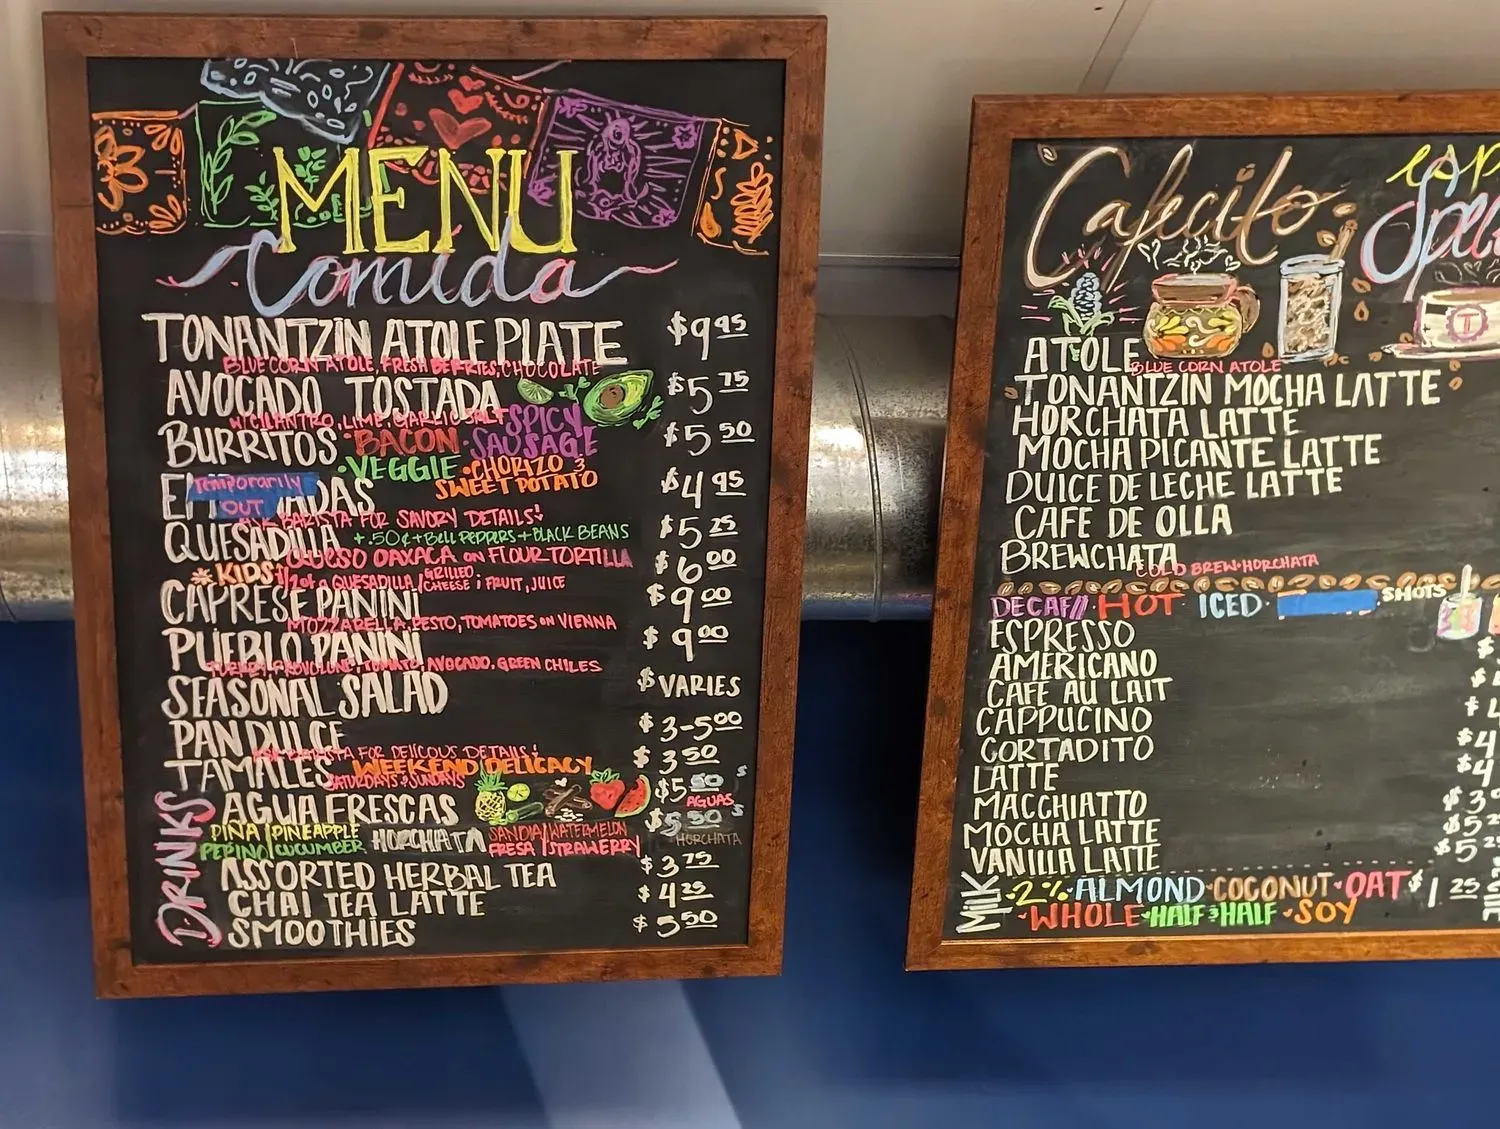 MENU
Comida
TONANTZIN ATOLE PLATE $9 95
BLUE CORN ATOLE, FRESH BERRIES, CHOCOLATE
AVOCADO TOSTADA $5 75
W/CILANTRO, LIME, GARLIC SALT
BURRITOS • BACON • SPICY SAUSAGE $5 50
• VEGGIE • CHORIZO & SWEET POTATO
Temporarily OUT
ADAS $4 95
BARISTA FOR SAVORY DETAILS!
QUESADILLA +.50¢ + BELL PEPPERS + BLACK BEANS $5 25
QUESO OAXACA ON FLOUR TORTILLA
KIDS 1/2 of a QUESADILLA / GRILLED CHEESE; FRUIT, JUICE $6 00
CAPRESE PANINI $9 00
MOZZARELLA, PESTO, TOMATOES ON VIENNA
PUEBLO PANINI $9 00
TURKEY, PROVOLONE, TOMATO, AVOCADO, GREEN CHILES
SEASONAL SALAD $ VARIES
PAN DULCE $3-5 00
BARISTA FOR DELICOUS DETAILS!
TAMALES WEEKEND DELICACY $3 50
SATURDAYS & SUNDAYS
DRINKS
AGUA FRESCAS $5 50 AGUAS
PIÑA / PINEAPPLE HORCHATA SANDIA / WATERMELON $5 50
PEPINO / CUCUMBER FRESA / STRAWERRY HORCHATA
ASSORTED HERBAL TEA $3 75
CHAI TEA LATTE $4 25
SMOOTHIES $5 50
Cafecito
ATOLE BLUE CORN ATOLE
TONANTZIN MOCHA LATTE
HORCHATA LATTE
MOCHA PICANTE LATTE
DULCE DE LECHE LATTE
CAFE DE OLLA
BREWCHATA
COLD BREW•HORCHATA
DECAF // HOT ICED • SHOTS
ESPRESSO
AMERICANO
CAFE AU LAIT
CAPPUCINO
CORTADITO
LATTE
MACCHIATTO
MOCHA LATTE
VANILLA LATTE
MILK
• 2% • ALMOND • COCONUT • OAT $1 25
• WHOLE • HALF & HALF • SOY